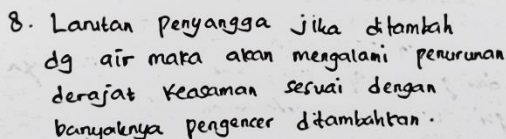 8. Larutan penyangga jika ditambah
dg air maka akan mengalami penurunan
derajat keasaman sesuai dengan
banyaknya pengencer ditambahkan.